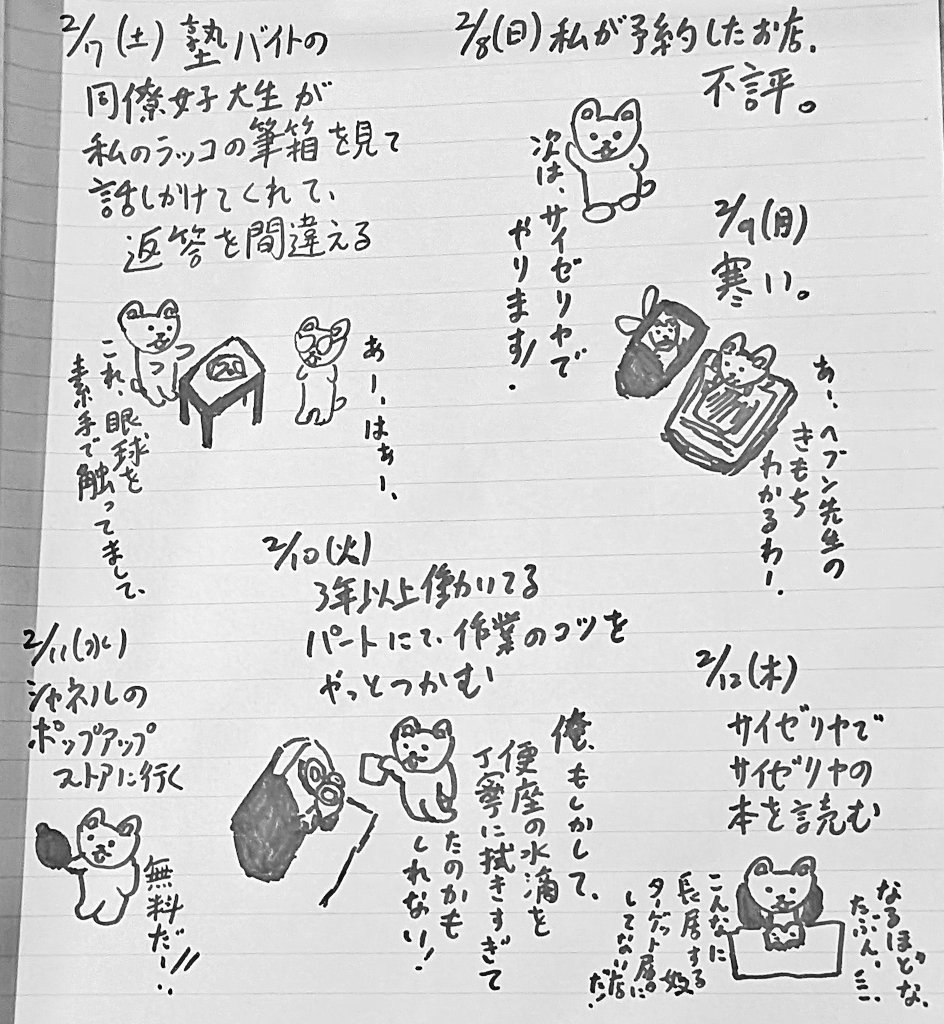 2/7(土) 塾バイトの
同僚女子大生が
私のラッコの筆箱を見て
話しかけてくれて、
返答を間違える
これ、眼球を
素手で触ってまして、
あーーはぁー、
2/8(日) 私が予約したお店、
不評。
次は、サイゼリヤで
やります!
2/9(月)
寒い。
あー、ヘブン先生の
きもち
わかるわー
2/10(火)
3年以上働いてる
パートにて、作業のコツを
やっとつかむ
俺、もしかして、
便座の水滴を
丁寧に拭きすぎて
たのかも
しれない!
2/11(水)
シャネルの
ポップアップ
ストアに行く
無料だー!!
2/12(木)
サイゼリヤで
サイゼリヤの
本を読む
なるほどな、
たぶん、
こんなに
長居する奴
ターゲット層に
してない店
だ!